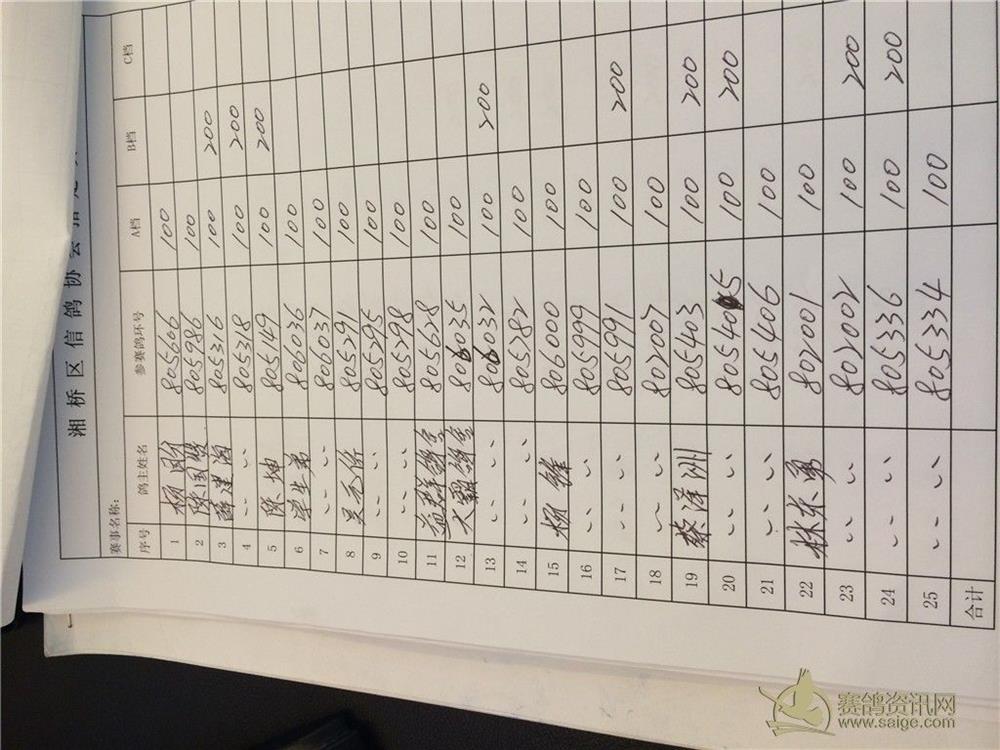 湘桥区信鸽协会指定
赛事名称:
序号 鸽主姓名 参赛鸽环号 A档 B档 C档
1 杨刚 805666 100
2 陈国胜 805986 100
3 薛建海 805316 100 200
4 〃 805318 100 200
5 陈坤 805149 100 200
6 学生弟 806036 100
7 〃 806037 100
8 吴元侨 805291 100
9 〃 805295 100
10 〃 805298 100
11 益群鸽舍 805628 100
12 大鹏鸽舍 806035 100
13 〃 806032 100 200
14 〃 805282 100
15 杨锋 806000 100
16 〃 805999 100
17 〃 805991 100 200
18 〃 802007 100
19 蔡泽洲 805403 100 200
20 〃 805405 100 200
21 〃 805406 100
22 林东勇 802001 100
23 〃 802002 100 200
24 〃 805336 100 200
25 〃 805334 100
合计
赛鸽资讯网
www.saige.com